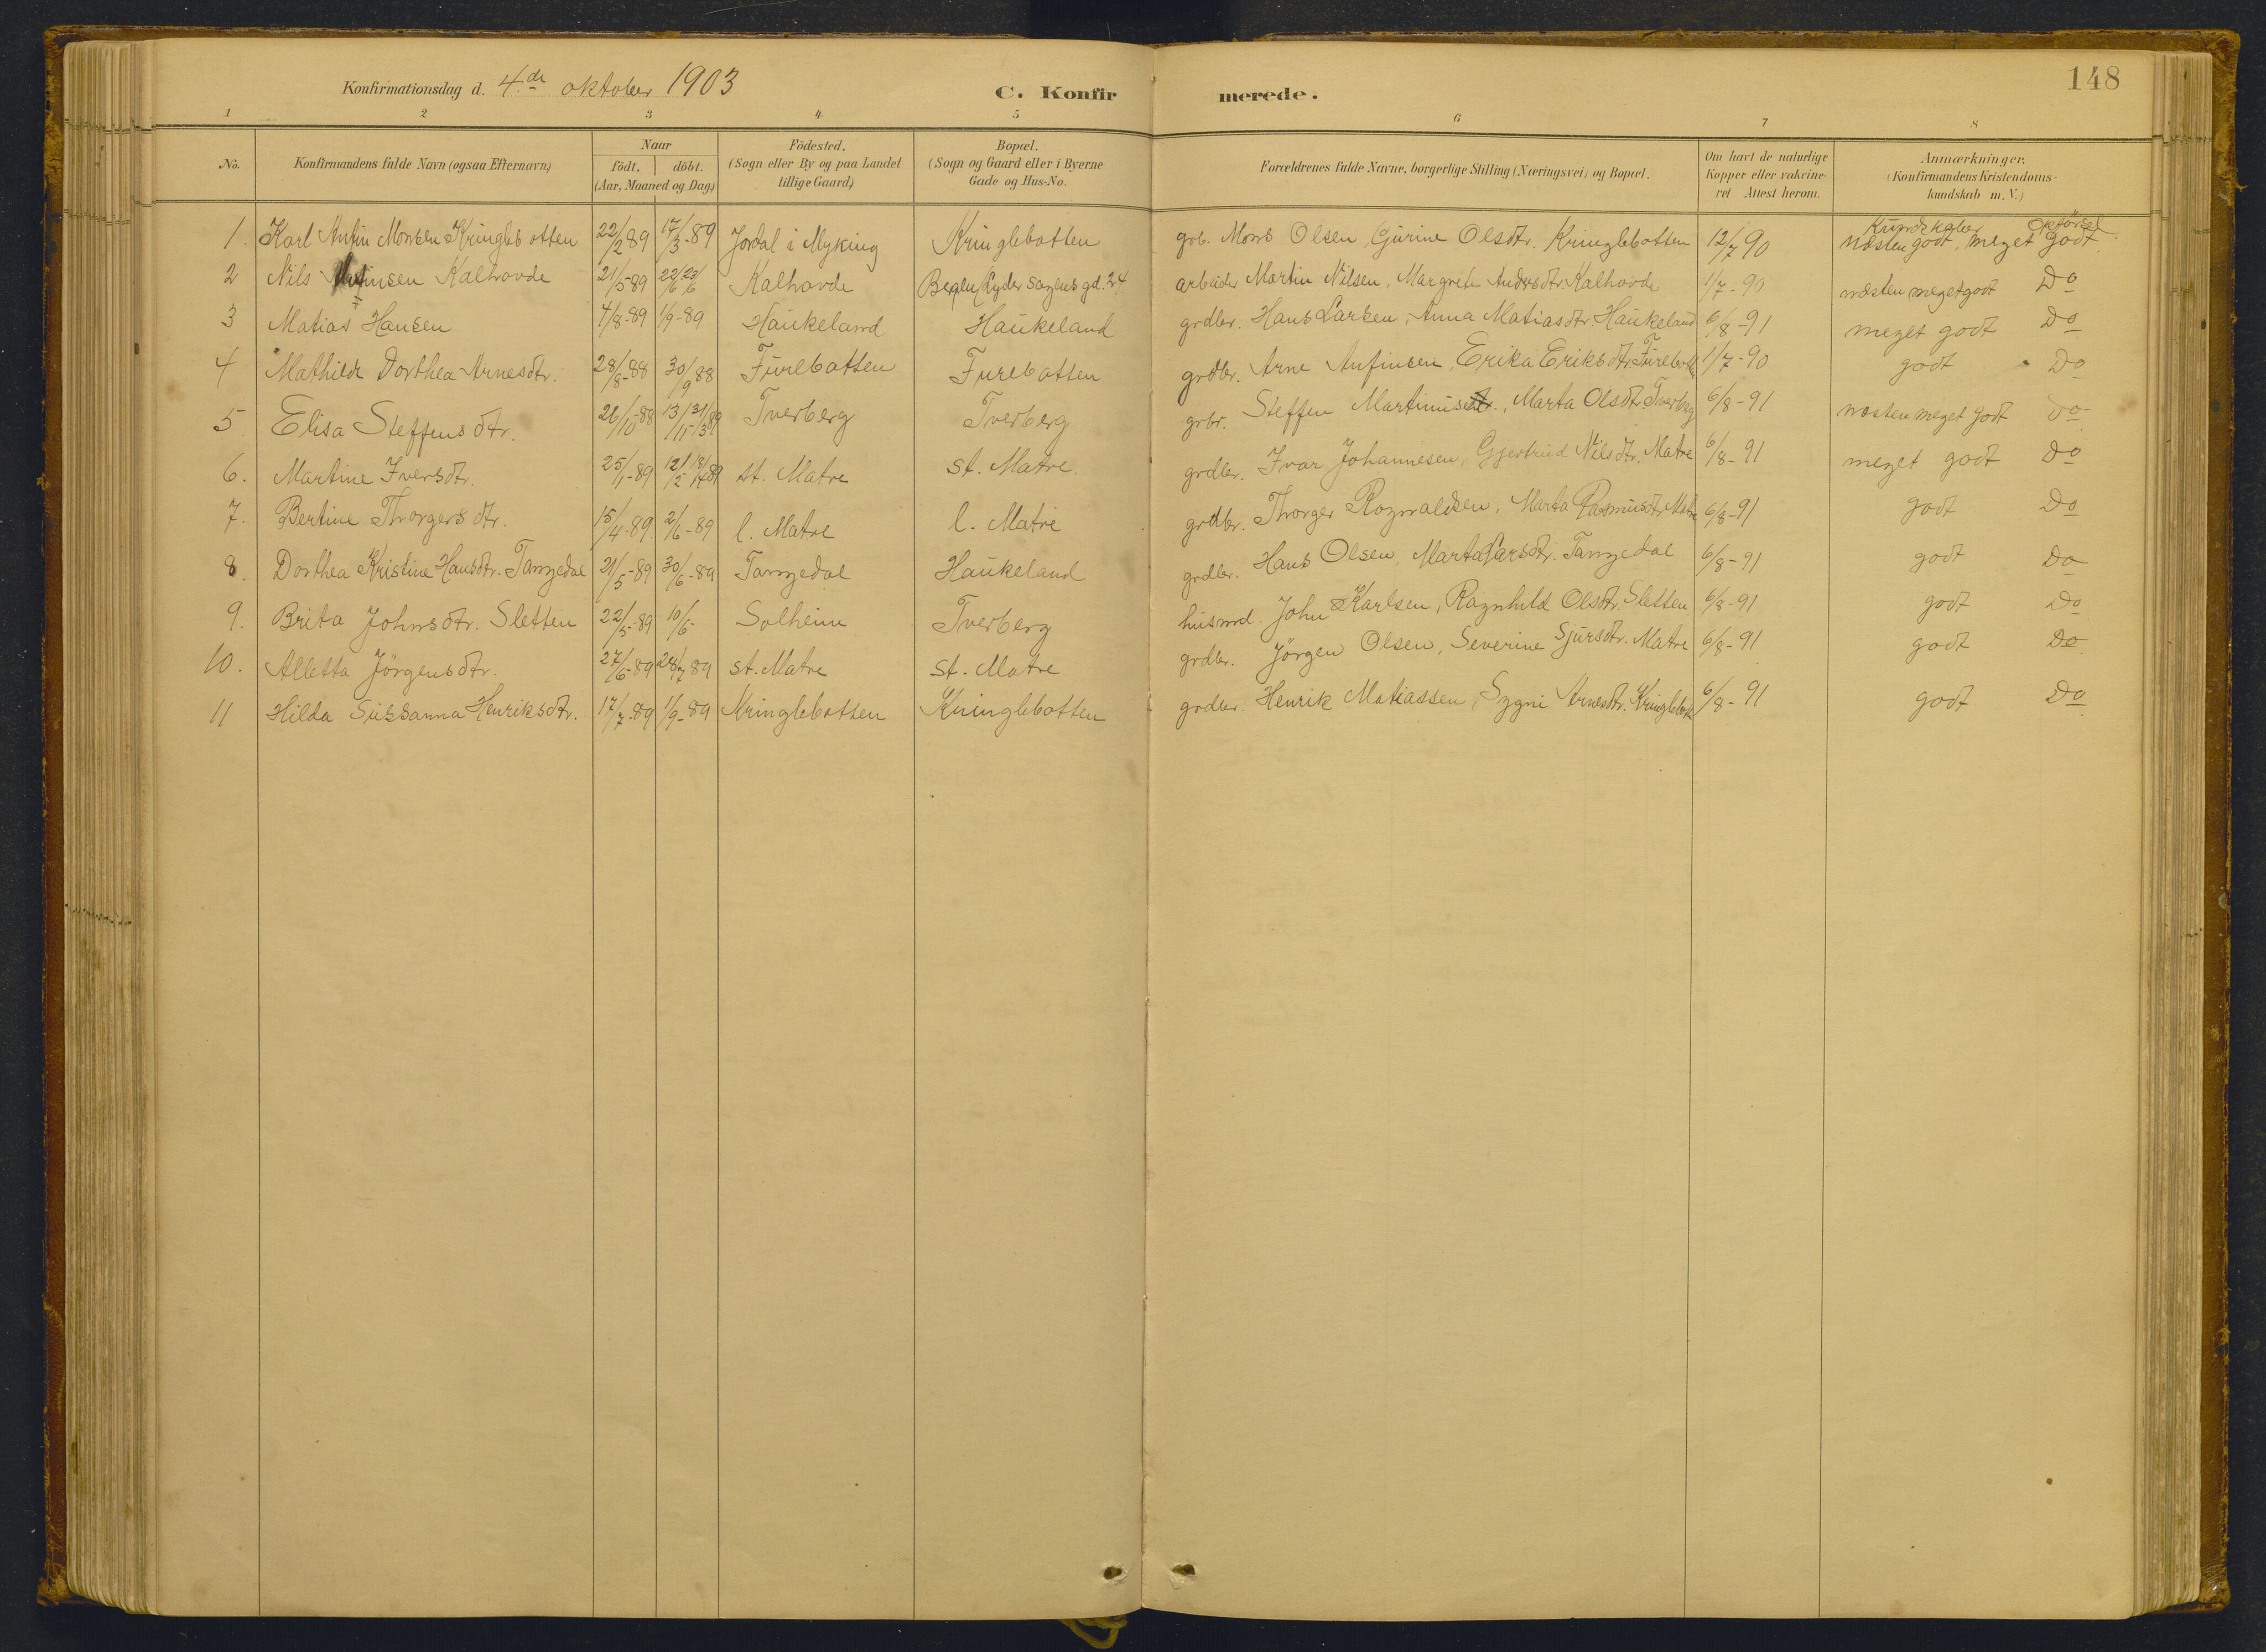 Konfirmationsdag d. 4.de oktober 1903 C. Konfir merede. 148
1 2 3 4 5 6 7 8
No. Konfirmandens fulde Navn (ogsaa Efternavn) Naar födt. döbt. (Aar, Maaned og Dag) Födested. (Sogn eller By og paa Landet tillige Gaard) Bopæl. (Sogn og Gaard eller i Byerne Gade og Hus-No. Forældrenes fulde Navne, borgerlige Stilling (Næringsvei) og Bopæl. Om havt de naturlige Kopper eller vakcineret Attest herom. Anmærkninger. (Konfirmandens Kristendomskundskab m. V.)
Kundskaber Opförsel
1 Karl Anfin Monsen Kringlebotten 22/2 89 17/3-89 Jordal i Myking Kringlebotten grb. Mons Olsen, Gurine Olsdtr. Kringlebotten 12/7 90 næsten godt, meget godt
2 Nils Kalhovde 21/5 89 22/6 23/6 Kalhovde Bergen Lyder Sagens gd. 24 arbeider Martin Nilsen, Margrete Andersdtr. Kalhovde 1/7-90 næsten meget godt Do
3 Matias Hansen 4/8-89 1/9-89 Haukeland Haukeland grdbr. Hans Larsen, Anna Matiasdtr. Haukeland 6/8-91 meget godt Do
4 Mathilde Dorthea Arnesdtr. 28/8-88 30/9 88 Furebotten Furebotten grdbr. Arne Anfinsen, Erika Eriksdtr. 1/7-90 godt Do
5 Elisa Steffensdtr. 26/10-88 13/11 31/3 89 Tverberg Tverberg grbr. Steffen Marta Olsdtr. Tverberg 6/8-91 næsten meget godt Do
6. Martine Iversdtr. 25/1-89 12/2 89 st. Matre st. Matre grdbr. Ivar Johannesen, Gjertrud Nilsdtr. Matre 6/8-91 meget godt Do
7. Bertine Thorgersdtr. 15/4-89. 2/6-89 l. Matre l. Matre grdbr. Thorger Rognvaldsen, Marta Rasmusdtr. Matre 6/8-91 godt Do
8. Dorthea Kristine Hansdtr. Tangedal 21/5-89 30/6-89 Tangedal Haukeland grdbr. Hans Olsen, Marta Larsdtr. Tangedal 6/8-91 godt Do
9. Brita Johnsdtr. Sletten 22/5-89 10/6 Solheim Tverberg husmd. John Karlsen, Ragnhild Olsdtr. Sletten 6/8-91 godt Do
10. Alletta Jörgensdtr. 27/6-89 28/7 89 st. Matre st. Matre grdbr. Jörgen Olsen, Severine Sjursdtr. Matre 6/8-91 godt Do
11 Hilda Sussanna Henriksdtr. 17/7-89 1/9-89 Kringlebotten Kringlebotten grdbr. Henrik Matiassen, Sygni Arnesdtr. 6/8-91 godt Do